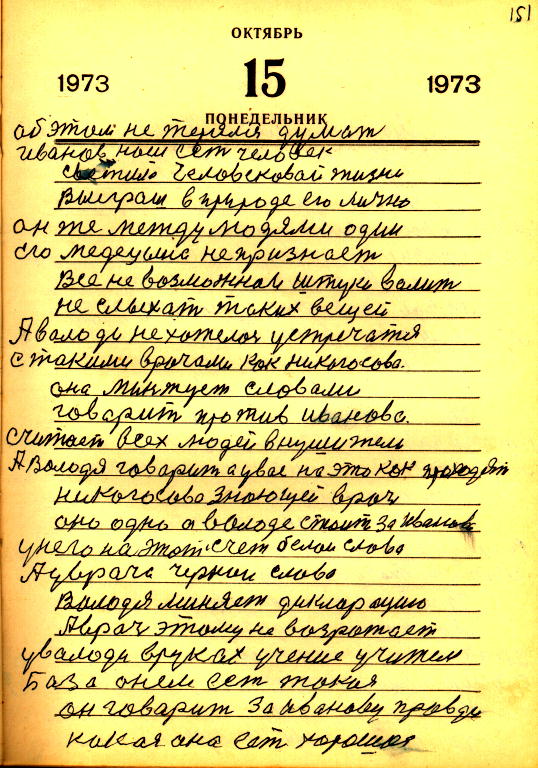 151
ОКТЯБРЬ
1973 15 1973
ПОНЕДЕЛЬНИК
об этом не терялся думат
Иванов наш сет человек
светило человековай жизни
Выиграш в природе его лично
он же между людями один
его медецына непризнает
Все не возможнаи штуки валит
не слыхат таких вещей
А валоди не хотелос устречатся
с такими врочами как никогосова.
она мижует словами
говарит против Иванова.
считает всех людей внушители
А Володя говарит а увас на это как проходят
никогосова знающей врач
оно одно а володе стоит за Иванова
унего на этот счет белои слова
А уврача чернои слова
Володя миняет дикларацию
Аврач этому не возротает
увалоди вруках учение учителя
База онем сет такая
он говарит за Иванову правди
какая она сет хорошая